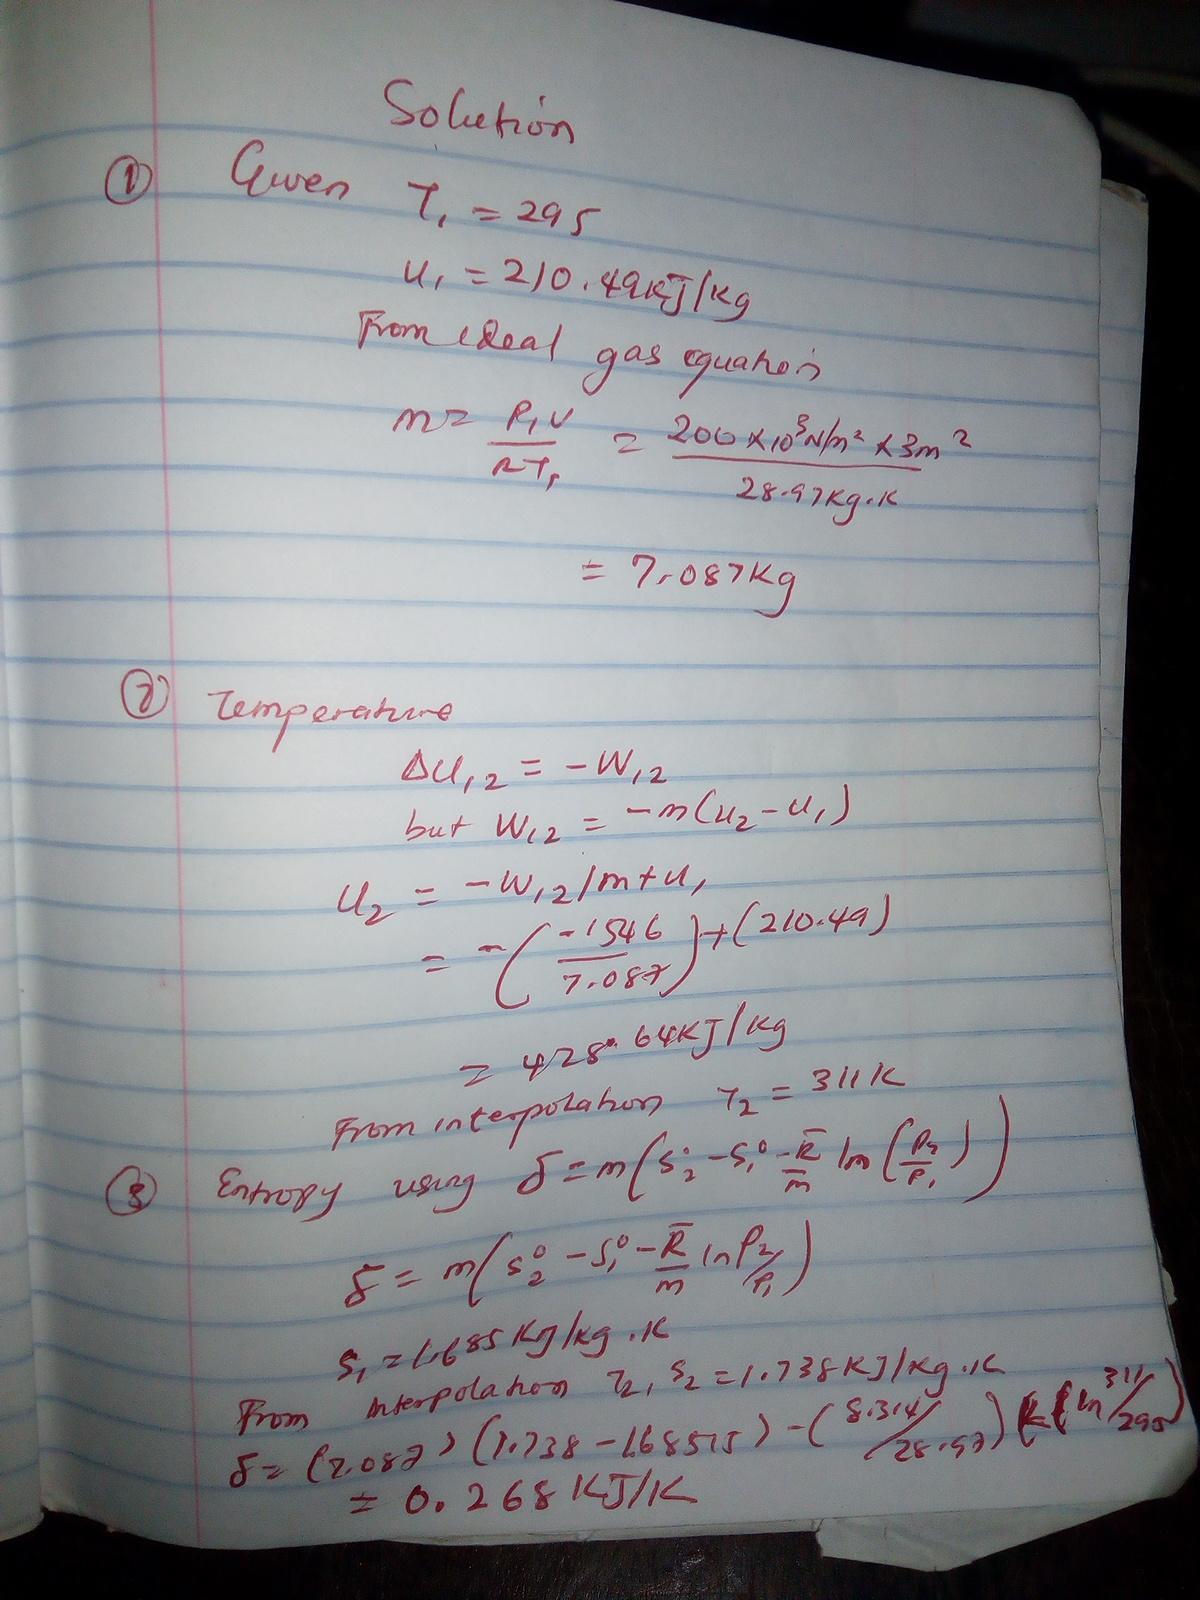 Solution
① Given T₁ = 295
u₁ = 210.49KJ/Kg
From ideal gas equation
m = P₁V/RT₁ = 200 x 10³N/m² x 3m²/28.97Kg.K
= 7.087Kg
② Temperature
ΔU₁₂ = -W₁₂
but W₁₂ = -m(u₂ - u₁)
U₂ = -W₁₂/m + u₁
= -(-1546/7.087) + (210.49)
= 428.64KJ/Kg
From interpolation T₂ = 311K
③ Entropy using δ = m(S₂° - S₁° - R̄/m ln(P₂/P₁))
δ = m(S₂° - S₁° - R̄/m ln P₂/P₁)
S₁ = 1.685 KJ/kg.K
From interpolation T₂, S₂ = 1.738KJ/Kg.K
δ = (7.087)(1.738 - 1.68515) - (8.314/28.97)(ln 311/295)
= 0.268 KJ/K